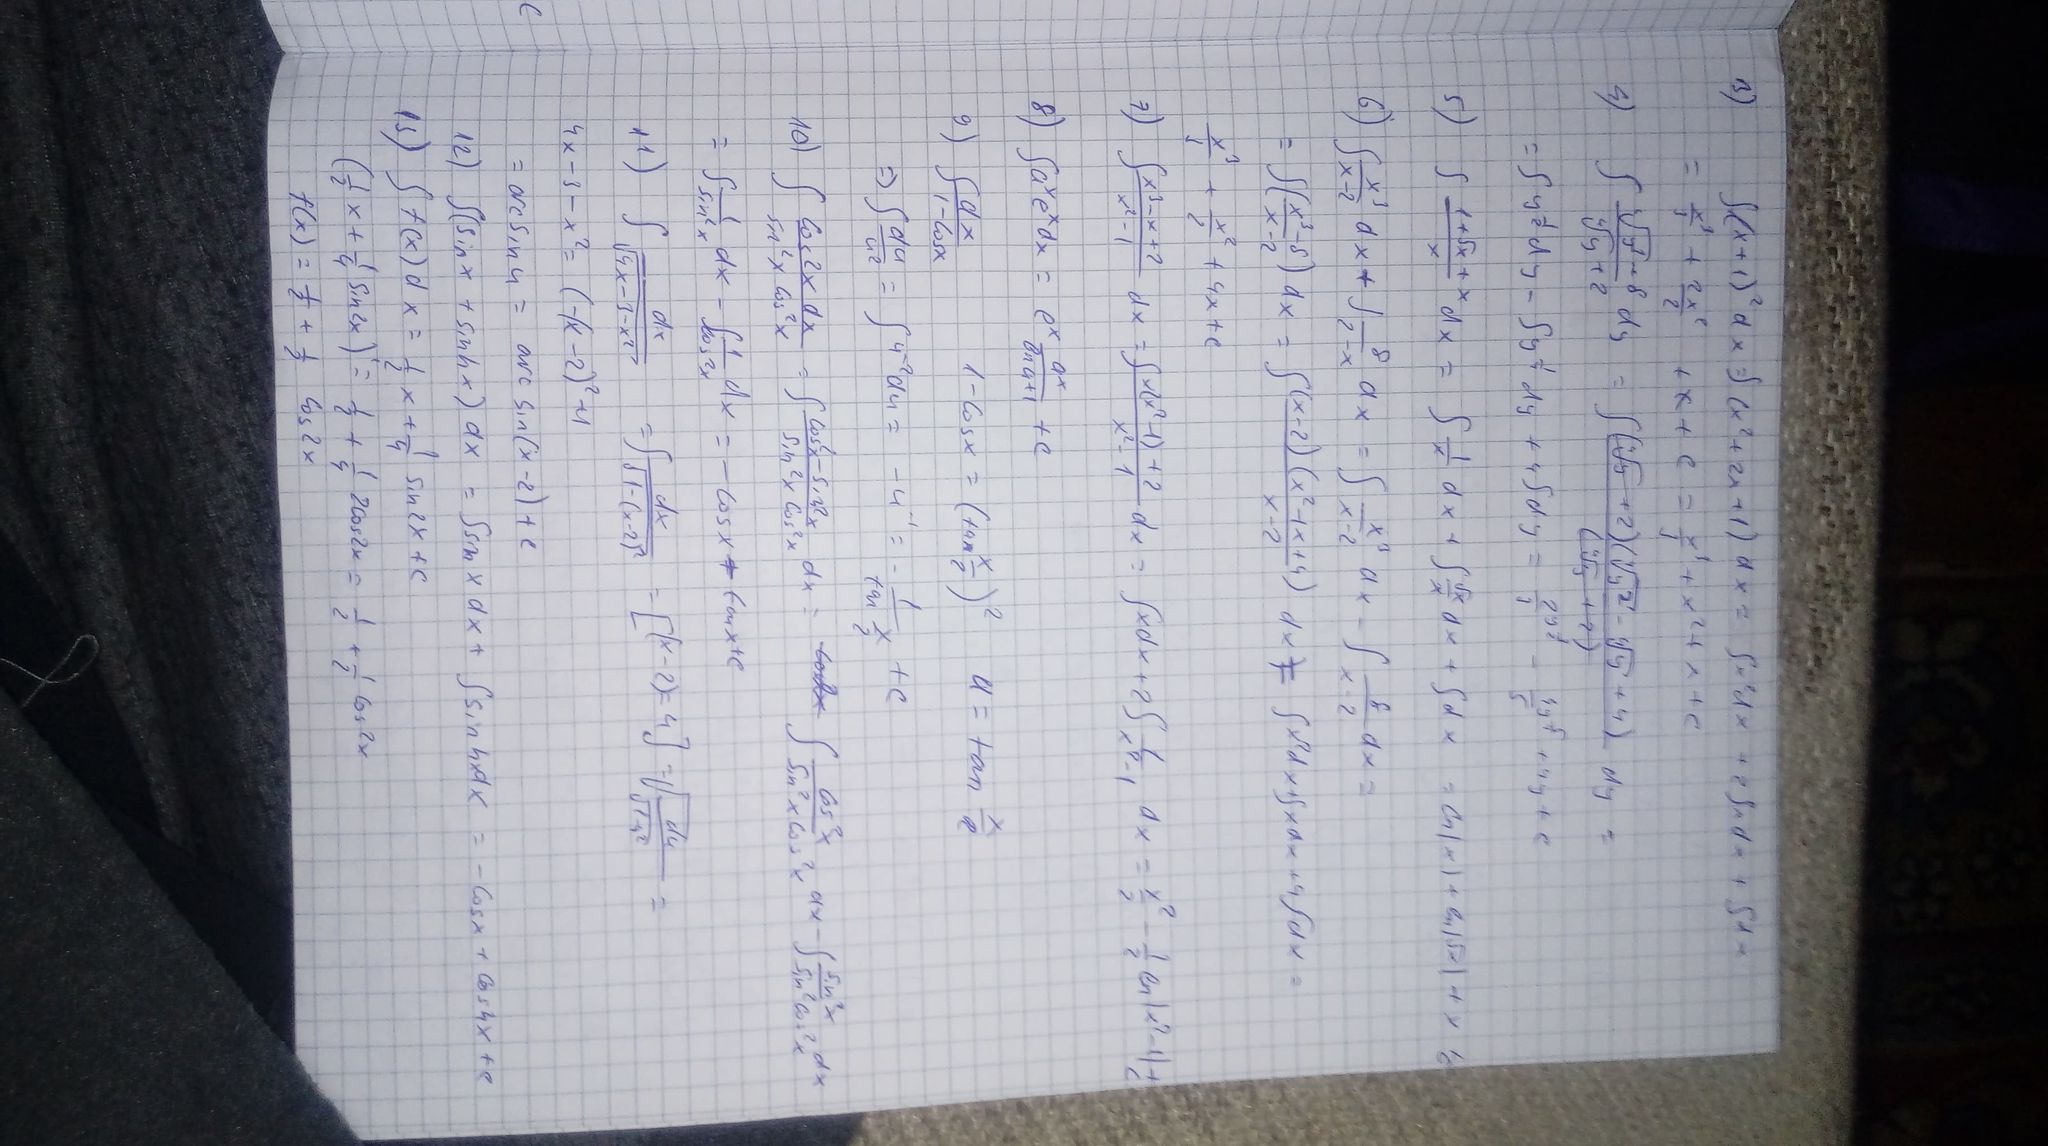 3) ∫(x+1)² dx = ∫(x²+2x+1) dx = ∫x²dx + 2∫xdx + ∫dx =
= x³/3 + 2x²/2 + x + c = 1/3 x³ + x² + x + c
4) ∫ (√y³ + 8)/(√y + 2) dy = ∫ (√y + 2)(√y² - 2√y + 4)/(√y + 2) dy =
5) ∫ (1+√x+x)/x dx = ∫ 1/x dx + ∫ √x/x dx + ∫dx = ln|x| + ln|√x| + x
6) ∫ x³/(x-2) dx + ∫ 8/(2-x) dx = ∫ x³/(x-2) dx - ∫ 8/(x-2) dx =
= ∫ (x³-8)/(x-2) dx = ∫ (x-2)(x²+x+4)/(x-2) dx = ∫x²dx + ∫xdx + 4∫dx =
x³/3 + x²/2 + 4x + c
7) ∫ (x³-x+2)/(x²-1) dx = ∫ (x(x²-1)+2)/(x²-1) dx = ∫xdx + 2∫ 1/(x²-1) dx = x²/2 - 1/2 ln|x²-1| + c
8) ∫aˣeˣdx = eˣ aˣ/(ln a+1) + c
9) ∫ dx/(1-cosx) 1-cosx = (tan x/2)² u = tan x/2
=> ∫ du/u² = ∫ u⁻² du = -u⁻¹ = - 1/(tan x/2) + c
10) ∫ cos2x dx/(sin²x cos²x) = ∫ (cos²x - sin²x)/(sin²x cos²x) dx = ∫ cos²x/(sin²x cos²x) dx - ∫ sin²x/(sin²cos²x) dx
= ∫ 1/sin²x dx - ∫ 1/cos²x dx = -cosx + tanx + c
11) ∫ dx/√(4x-3-x²) = ∫ dx/√(1-(x-2)²) = [(x-2) = u] = ∫ du/√(1-u²) =
4x-3-x² = (-(x-2)²+1
= arc sin u = arc sin(x-2) + c
12) ∫(sinx + sinhx) dx = ∫sinx dx + ∫sinhxdx = -cosx + coshx + c
13) ∫ f(x) dx = 1/2 x + 1/4 sin2x + c
(1/2 x + 1/4 sin2x)' = 1/2 + 1/4 2cos2x = 1/2 + 1/2 cos2x
f(x) = 1/2 + 1/2 cos2x